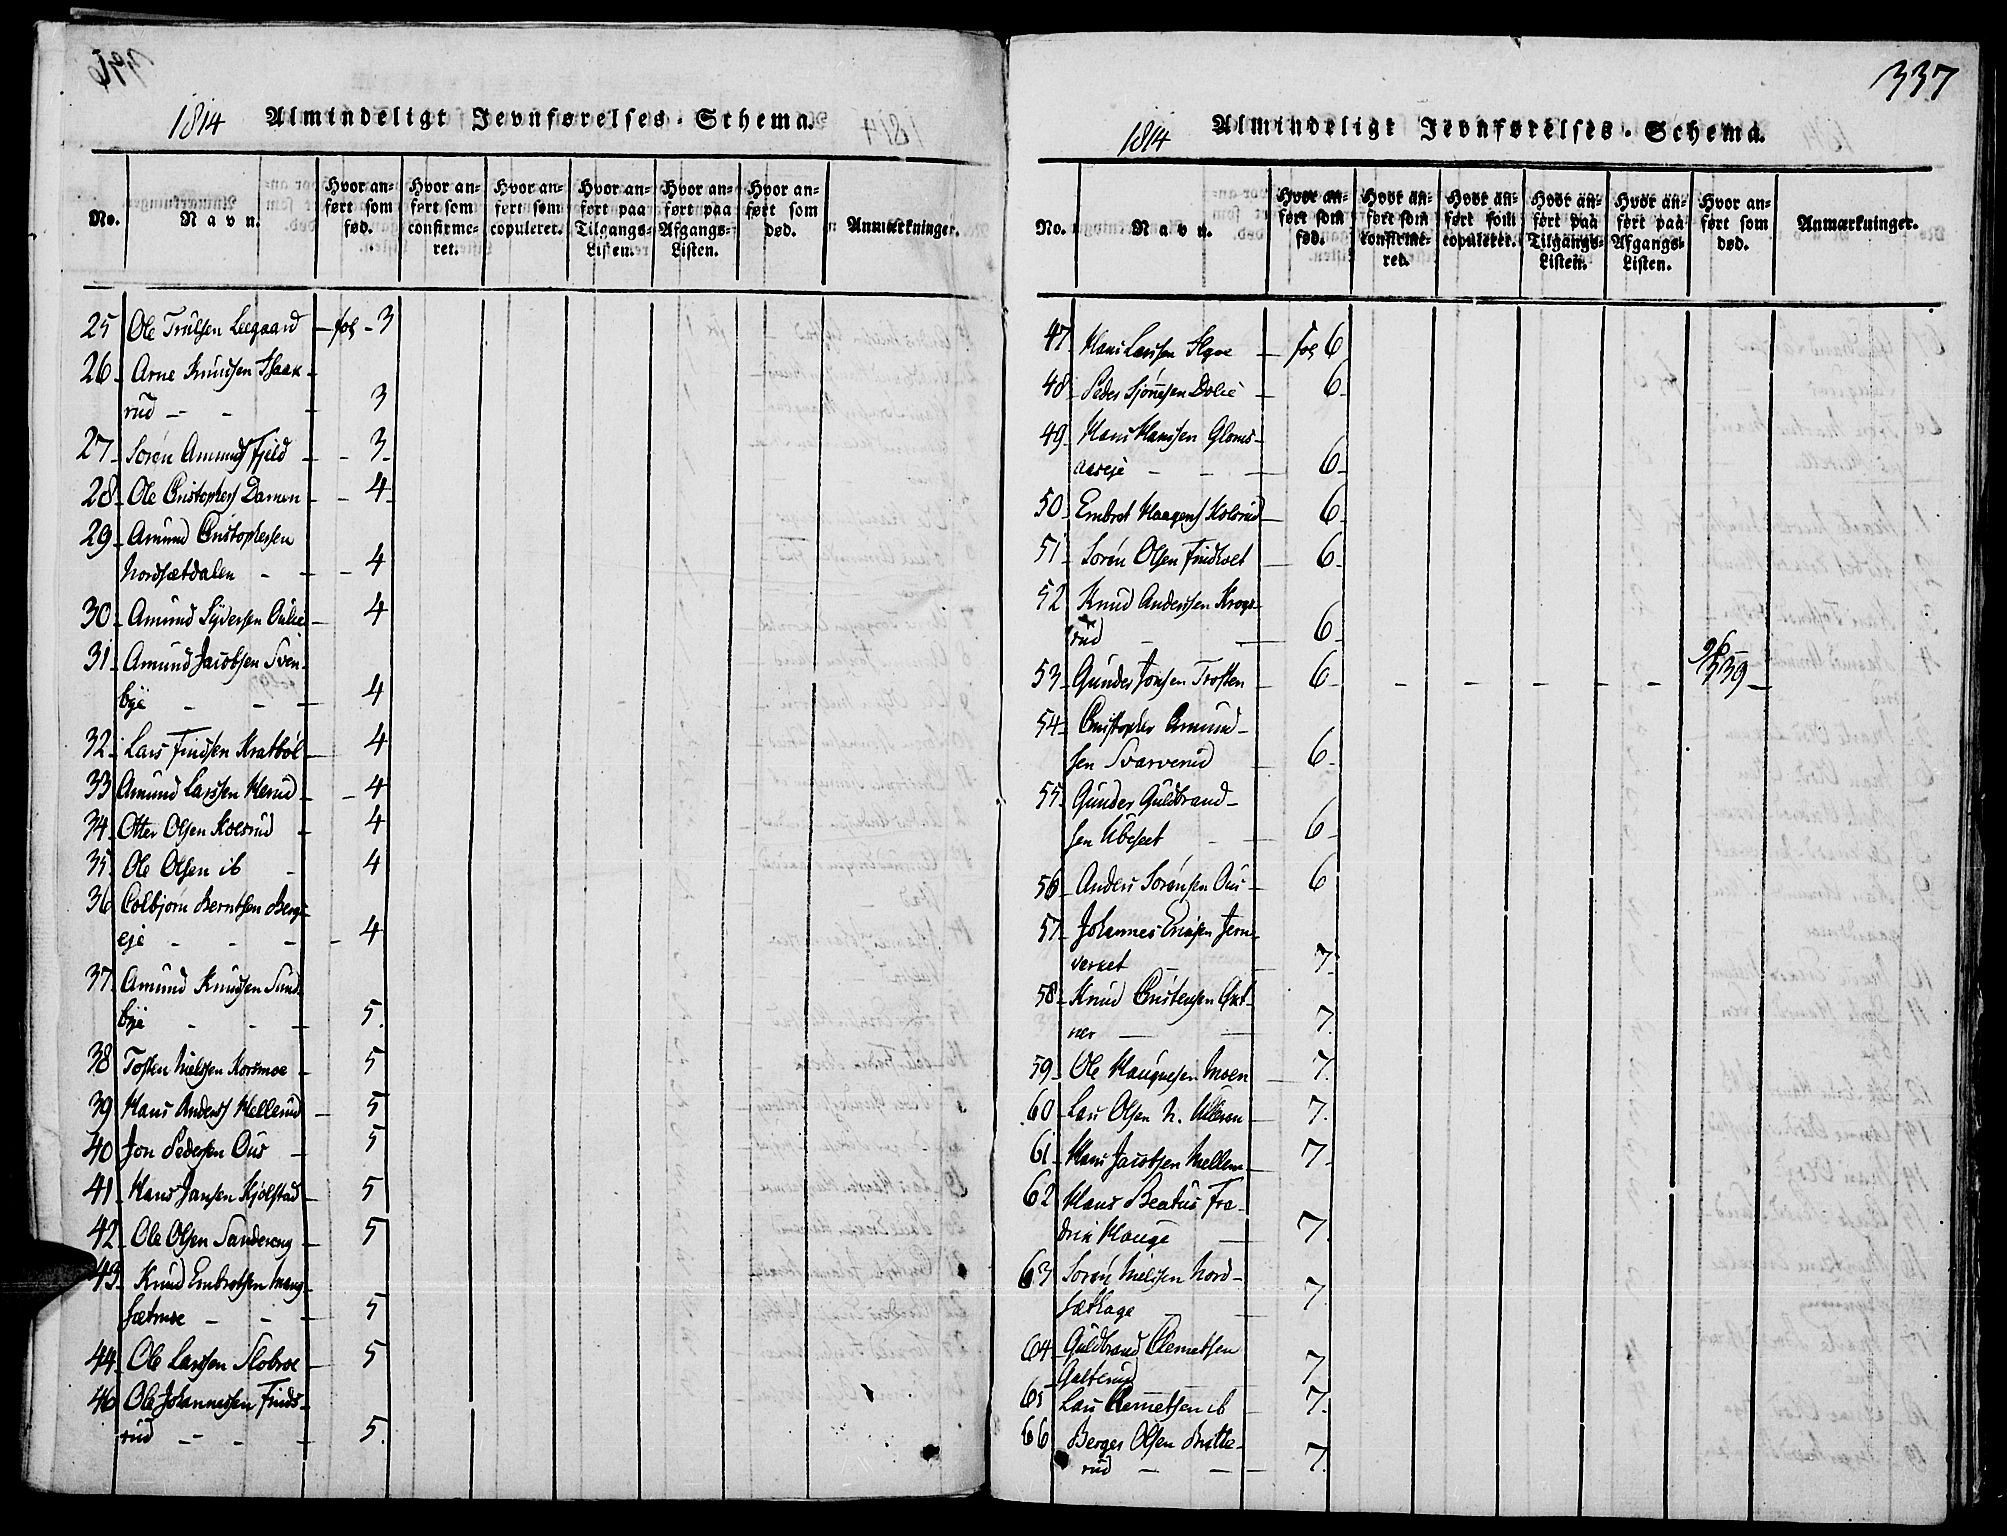 1814 Almindeligt Jevnførelses-Schema.
No.
Navn.
Hvor an-
ført som
fød.
Hvor an-
ført som
confirme-
ret.
Hvor an-
ført som
copuleret.
Hvor an-
ført paa
Tilgangs-
Listen.
Hvor an-
ført paa
Afgangs-
Listen.
Hvor an-
ført som
død.
Anmærkninger.
25 Ole Trulsen Leegaard fol 3
26 Arne Knudsen Haak-
rud 3
27 Soren Amunds Fjeld 3
28 Ole Christophers Damen 4
29 Amund Christophersen
Nordsætdalen 4
30 Amund Syversen 4
31 Amund Jacobsen Sven-
bye 4
32 Lars Findsen Kratbøl 4
33 Amund Larssen Herud 4
34 Otter Olsen Kolsrud 4
35 Ole Olsen ib 4
36 Colbjørn Berntsen Bergs-
eje 4
37 Amund Knudsen Sund-
bye 5
38 Tosten Nielssen Korsmoe 5
39 Hans Anders Mellerud 5
40 Jon Pedersen Ous 5
41 Hans Jansen Kjølstad 5
42 Ole Olsen Sandereng 5
43 Knud Embretsen Mang-
sætmoe 5
44 Ole Larssen Slobroe 5
46 Ole Johannessen Finds-
rud 5
337
1814 Almindeligt Jevnførelses-Schema.
No.
Navn.
Hvor an-
ført som
fød.
Hvor an-
ført som
confirme-
ret.
Hvor an-
ført som
copuleret.
Hvor an-
ført paa
Tilgangs-
Listen.
Hvor an-
ført paa
Afgangs-
Listen.
Hvor an-
ført som
død.
Anmærkninger.
47 Hans Larssen fol 6
48 Peder 6
49 Hans Hanssen Gloms-
aaseje 6
50 Embret Haagens Kolsrud 6
51 Soren Olsen Findholt 6
52 Knud Anderssen Krogs-
rud 6
53 Gunder Jonsen Trosten 6 139
54 Christopher Amund-
sen Svarverud 6
55 Gunder Guldbrand-
sen Ubeseet 6
56 Anders Sorensen Ous 6
57 Johannes Ericsen Jern-
verket 7
58 Knud Christensen Oxt-
ner 7
59 Ole Hauguesen Moen 7
60 Lars Olsen N. Ulleren 7
61 Hans Jacobsen Mellem 7
62 Hans Beatus Fre-
drik Hauge 7
63 Soren Nielssen Nord-
sæthage 7
64 Guldbrand Clemetsen
Galterud 7
65 Lars Clemetsen ib 7
66 Berger Olsen Butte-
rud 7